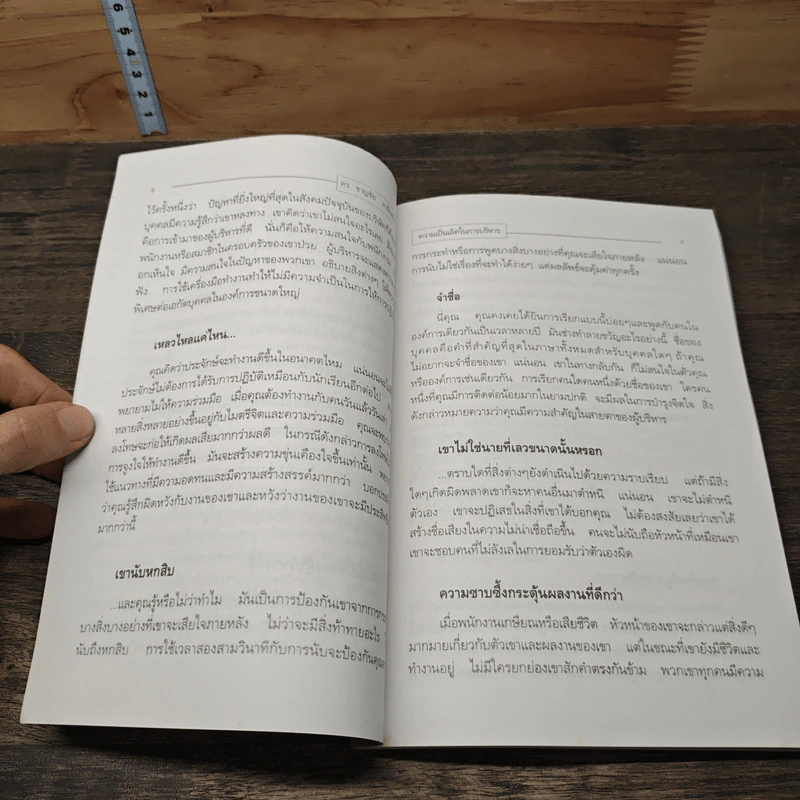 6
5
4
3
2
1
8
ดร. ชาญชัย
ไว้ครั้งหนึ่งว่า ปัญหาที่ยิ่งใหญ่ที่สุดในสังคมปัจจุบันของบริษัท
บุคคลมีความรู้สึกว่าเขาหลงทาง เขาคิดว่าเขาไม่สนใจอะไรเลย
คือการเข้ามาของผู้บริหารที่ดี นั่นก็คือให้ความสนใจกับพนักงาน
พนักงานหรือสมาชิกในครอบครัวของเขาป่วย ผู้บริหารจะแสดง
อกเห็นใจ มีความสนใจในปัญหาของพวกเขา อธิบายสิ่งต่างๆ
ฟัง การใช้เครื่องมือทำงานทำให้ไม่มีความจำเป็นในการให้การ
พิเศษต่อเอกัตบุคคลในองค์การขนาดใหญ่
เหลวไหลแค่ไหน...
คุณคิดว่าประจักษ์จะทำงานดีขึ้นในอนาคตไหม แน่นอน
ประจักษ์ไม่ต้องการได้รับการปฏิบัติเหมือนกับนักเรียนอีกต่อไป
พยายามไม่ให้ความร่วมมือ เมื่อคุณต้องทำงานกับคนวันแล้ววันเล่า
หลายสิ่งหลายอย่างขึ้นอยู่กับไมตรีจิตและความร่วมมือ คุณจะพบว่า
ลงโทษจะก่อให้เกิดผลเสียมากกว่าผลดี ในกรณีดังกล่าวการลงโทษ
การจูงใจให้ทำงานดีขึ้น มันจะสร้างความขุ่นเคืองใจขึ้นเท่านั้น
ใช้แนวทางที่มีความอดทนและมีความสร้างสรรค์มากกว่า บอก
ว่าคุณรู้สึกผิดหวังกับงานของเขาและหวังว่างานของเขาจะมี
มากกว่านี้
เขานับหกสิบ
...และคุณรู้หรือไม่ว่าทำไม มันเป็นการป้องกันเขาจากการ
บางสิ่งบางอย่างที่เขาจะเสียใจภายหลัง ไม่ว่าจะมีสิ่งท้าทายอะไร
นับถึงหกสิบ การใช้เวลาสองสามวินาทีกับการนับจะป้องกันคุณ
ความเป็นเลิศในการบริหาร
การกระทำหรือการพูดบางสิ่งบางอย่างที่คุณจะเสียใจภายหลัง แน่นอน
การนับไม่ใช่เรื่องที่จะทำได้ง่ายๆ แต่ผลลัพธ์จะคุ้มค่าทุกครั้ง
จำชื่อ
นี่คุณ คุณคงเคยได้ยินการเรียกแบบนี้บ่อยๆและพูดกับคนใน
องค์การเดียวกันเป็นเวลาหลายปี มันช่างทำลายขวัญอะไรอย่างนี้ ชื่อของ
บุคคลคือคำที่สำคัญที่สุดในภาษาทั้งหมดสำหรับบุคคลใดๆ ถ้าคุณ
ไม่อยากจะจำชื่อของเขา แน่นอน เขาในทางกลับกัน ก็ไม่สนใจในตัวคุณ
หรือองค์การเช่นเดียวกัน การเรียกคนใดคนหนึ่งด้วยชื่อของเขา ใครคน
หนึ่งที่คุณมีการติดต่อน้อยมากในยามปกติ จะมีผลในการบำรุงจิตใจ สิ่ง
ดังกล่าวหมายความว่าคุณมีความสำคัญในสายตาของผู้บริหาร
เขาไม่ใช่นายที่เลวขนาดนั้นหรอก
...ตราบใดที่สิ่งต่างๆยังดำเนินไปด้วยความราบเรียบ แต่ถ้ามีสิ่ง
ใดๆเกิดผิดพลาดเขาก็จะหาคนอื่นมาตำหนิ แน่นอน เขาจะไม่ตำหนิ
ตัวเอง เขาจะปฏิเสธในสิ่งที่เขาได้บอกคุณ ไม่ต้องสงสัยเลยว่าเขาได้
สร้างชื่อเสียงในความไม่น่าเชื่อถือขึ้น คนจะไม่นับถือหัวหน้าที่เหมือนเขา
เขาจะชอบคนที่ไม่ลังเลในการยอมรับว่าตัวเองผิด
ความซาบซึ้งกระตุ้นผลงานที่ดีกว่า
เมื่อพนักงานเกษียณหรือเสียชีวิต หัวหน้าของเขาจะกล่าวแต่สิ่งดีๆ
มากมายเกี่ยวกับตัวเขาและผลงานของเขา แต่ในขณะที่เขายังมีชีวิตและ
ทำงานอยู่ ไม่มีใครยกย่องเขาสักคำตรงกันข้าม พวกเขาทุกคนมีความ